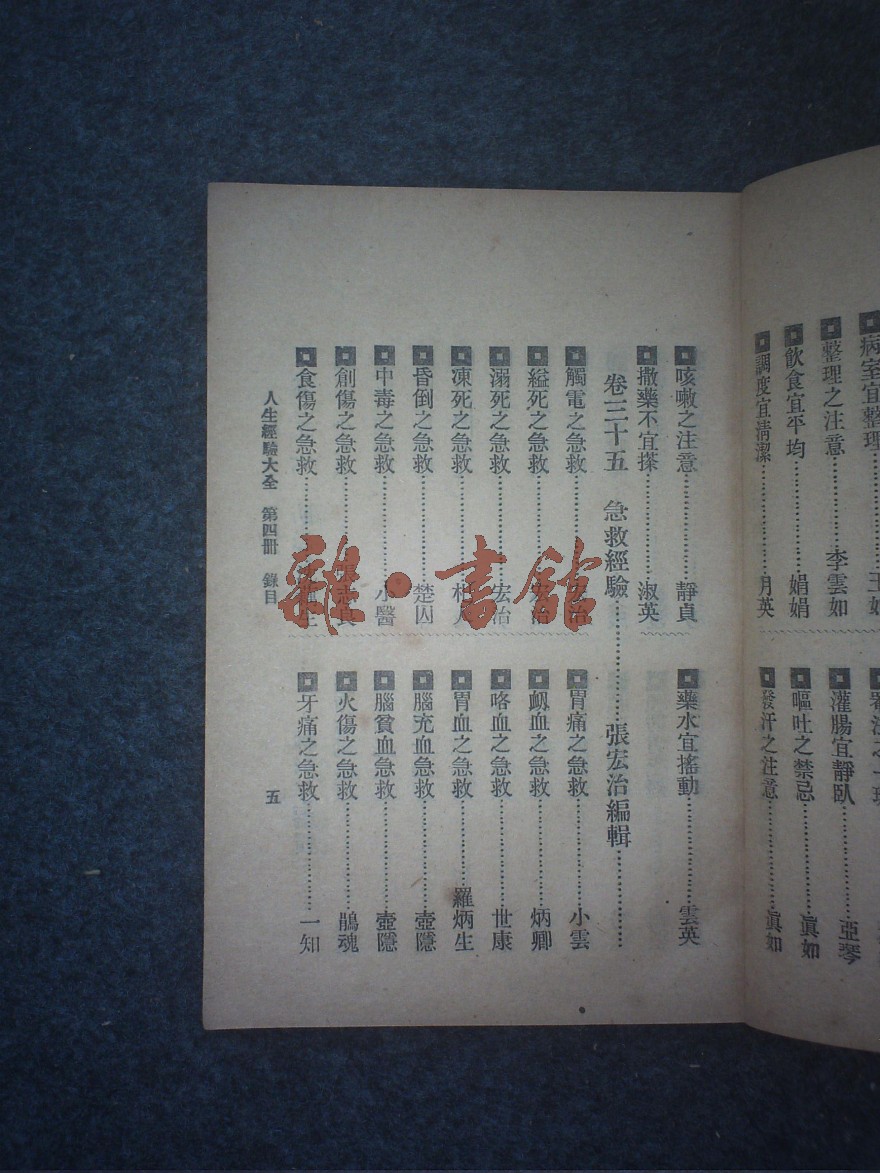 病室宜整理
整理之注意……李雲如
飲食宜平均……娟娟
調度宜清潔……月英
灌腸宜靜臥……亞琴
嘔吐之禁忌……眞如
發汗之注意……眞如
咳嗽之注意……靜貞
撒藥不宜搽……淑英
藥水宜搖動……雲英
卷三十五 急救經驗……張宏治編輯……
觸電之急救……宏治
縊死之急救……宏治
溺死之急救……宏治
凍死之急救
昏倒之急救……楚囚
中毒之急救……小醫
創傷之急救
食傷之急救
胃痛之急救……小雲
衂血之急救……炳卿
咯血之急救……世康
胃血之急救……羅炳生
腦充血急救……壺隱
腦貧血急救……壺隱
火傷之急救……鵑魂
牙痛之急救……一知
人生經驗大全 第四冊 錄目
五
雜·書館